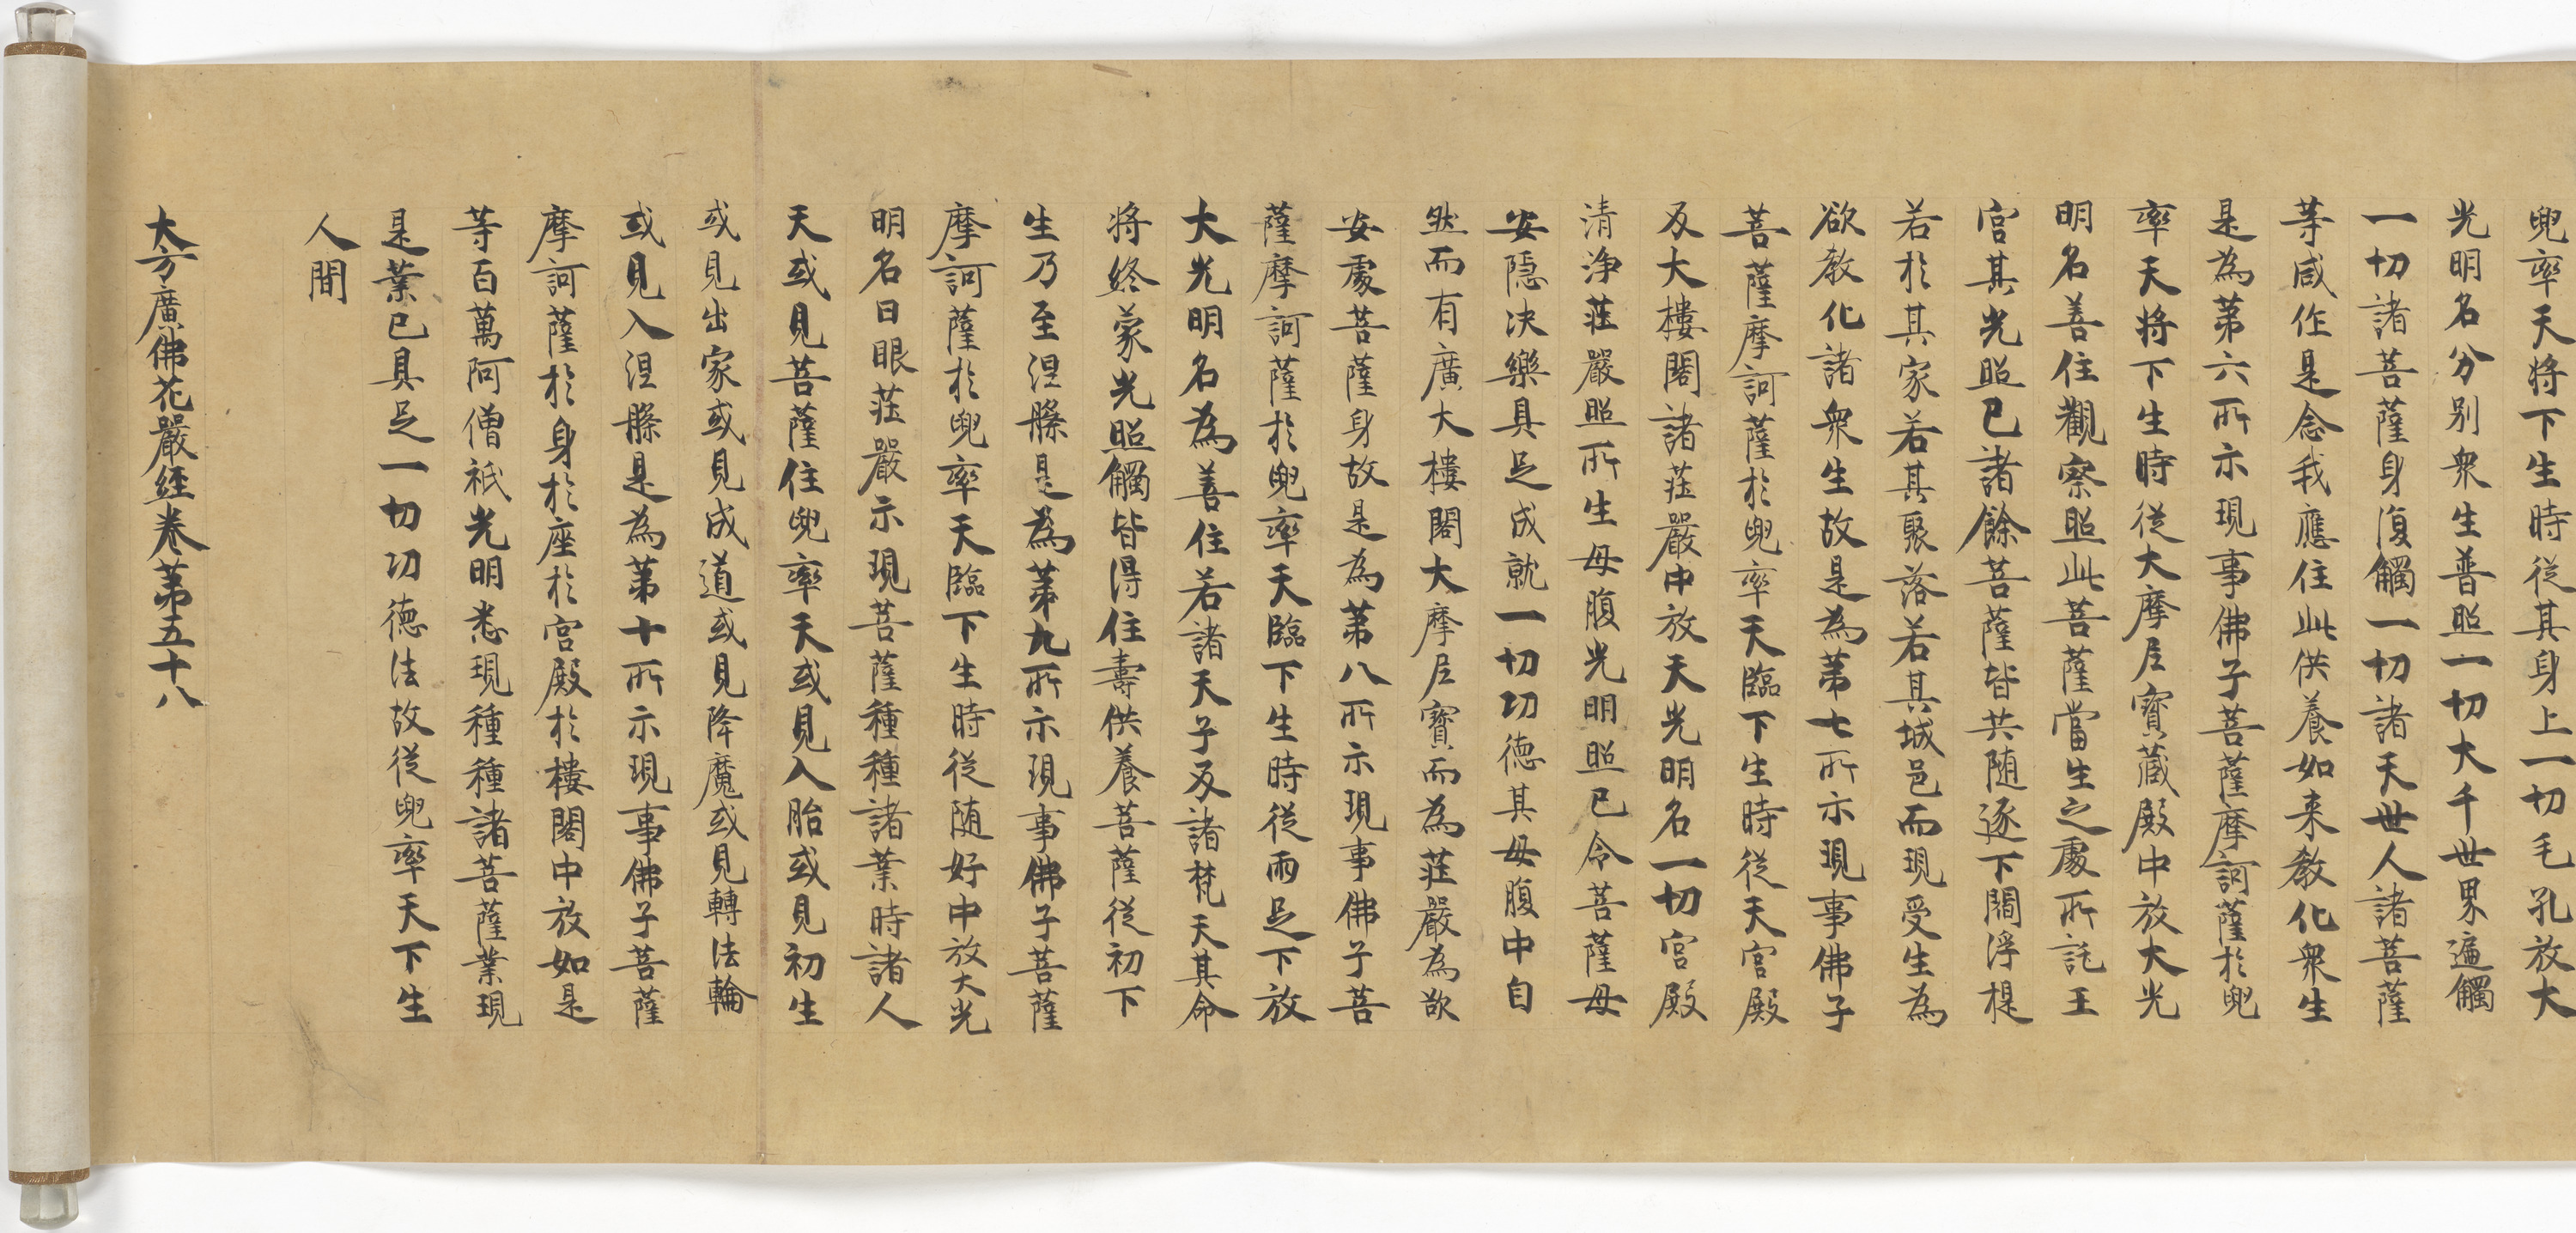 兜率天将下生時從其身上一切毛孔放大
光明名分别衆生普照一切大千世界遍觸
一切諸菩薩身復觸一切諸天世人諸菩薩
等咸作是念我應住此供養如来教化衆生
是為第六所示現事佛子菩薩摩訶薩於兜
率天将下生時從大摩尼寶藏殿中放大光
明名善住觀察照此菩薩當生之處所託王
宫其光照已諸餘菩薩皆共随逐下閻浮提
若於其家若其聚落若其城邑而現受生為
欲教化諸衆生故是為第七所示現事佛子
菩薩摩訶薩於兜率天臨下生時從天宫殿
及大樓閣諸莊嚴中放天光明名一切宫殿
清浄莊嚴照所生母腹光明照已令菩薩母
安隠决樂具足成就一切功徳其母腹中自
然而有廣大樓閣大摩尼寶而為莊嚴為欲
安處菩薩身故是為第八所示現事佛子菩
薩摩訶薩於兜率天臨下生時從兩足下放
大光明名為善住若諸天子及諸梵天其命
将終蒙光照觸皆得住壽供養菩薩從初下
生乃至涅槃是為第九所示現事佛子菩薩
摩訶薩於兜率天臨下生時從随好中放大光
明名日眼莊嚴示現菩薩種種諸業時諸人
天或見菩薩住兜率天或見入胎或見初生
或見出家或見成道或見降魔或見轉法輪
或見入涅槃是為第十所示現事佛子菩薩
摩訶薩於身於座於宫殿於樓閣中放如是
等百萬阿僧祇光明悉現種種諸菩薩業現
是業已具足一切功徳法故從兜率天下生
人間
大方廣佛花嚴經卷第五十八